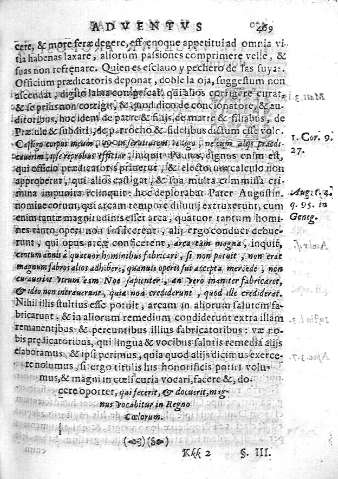 ADVENTVS 469
cere, & more feræ degere, est enoque appetitui ad omnia vi-
sia habenas laxare, aliorum passiones comprimere velle, &
suas non refrænare. Quien es esclauo y pechero de las suyas.
Officium prædicatoris deponat, doble la oja, suggestum non
ascendat, digito labia compescat, qui alios corrigere curat,
& se prius non corrigit, & quod dico de concionatore, & au-
ditoribus, hoc idem de patre & filijs, de matre & filiabus, de
Præsule & subditis, de parrocho & fidelibus dictum esse volo.
Castigo corpus meum, & in seruitutem redigo, ne cum alijs prædi-
cauerim, ipse reprobus efficiar, inquit Paulus, dignus enim est,
qui officio prædicatoris priuetur, & electorum calculo non
approbetur, qui alios castigat, & sua multa commissa cri-
mina impunita relinquit: hoc deplorabat Pater Augustin.
nomine eorum, qui arcam tempore diluuij extruxerunt, cum
enim tantæ magnitudinis esset arca, quatuor tantum homi-
nes tanto operi non sufficerent, alij ergo conduci debue-
runt, qui opus arcæ conficerent, arca tam magna, inquit,
centum annis à quatuor hominibus fabricari, si non potuit, non erat
magnum fabros alios adhiberi, quamuis operis sui accepta mercede, non
curauerint vtrum eam Noe sapienter, an vero inaniter fabricaret,
& ideo non intrauerunt, quia non crediderunt, quod ille crediderat.
Nihil illis stultius esse potuit, arcam in aliorum salutem fa-
bricarunt, & in aliorum remedium condiderunt extra illam
remanentibus, & pereuntibus illius fabricatoribus: væ no-
bis prædicatoribus, qui lingua & vocibus salutis remedia alijs
elaboramus, & ipsi perimus, quia quod alijs dicimus exerce-
re nolumus, si ergo titulis his honorificis potiri volu-
mus, & magni in cœlesti curia vocari, facere &, do-
cere oportet, qui fecerit, & docuerit, mag-
nus vocabitur in Regno
Cœlorum.
1. Cor. 9.
27.
August. q.
9. 95. in
Genes.
Kkk 2 §. III.